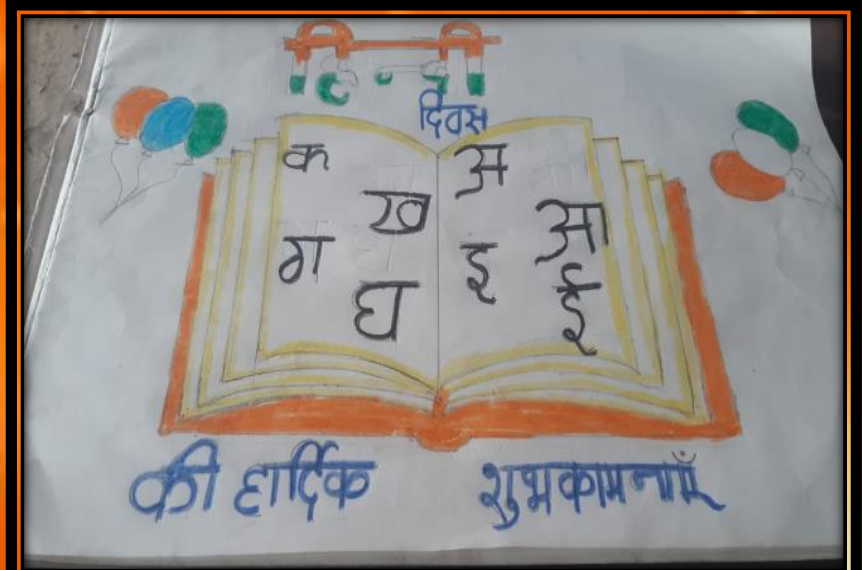 हिन्दी
दिवस
क ख
ग घ
अ आ
इ ई
की हार्दिक शुभकामनाएँ